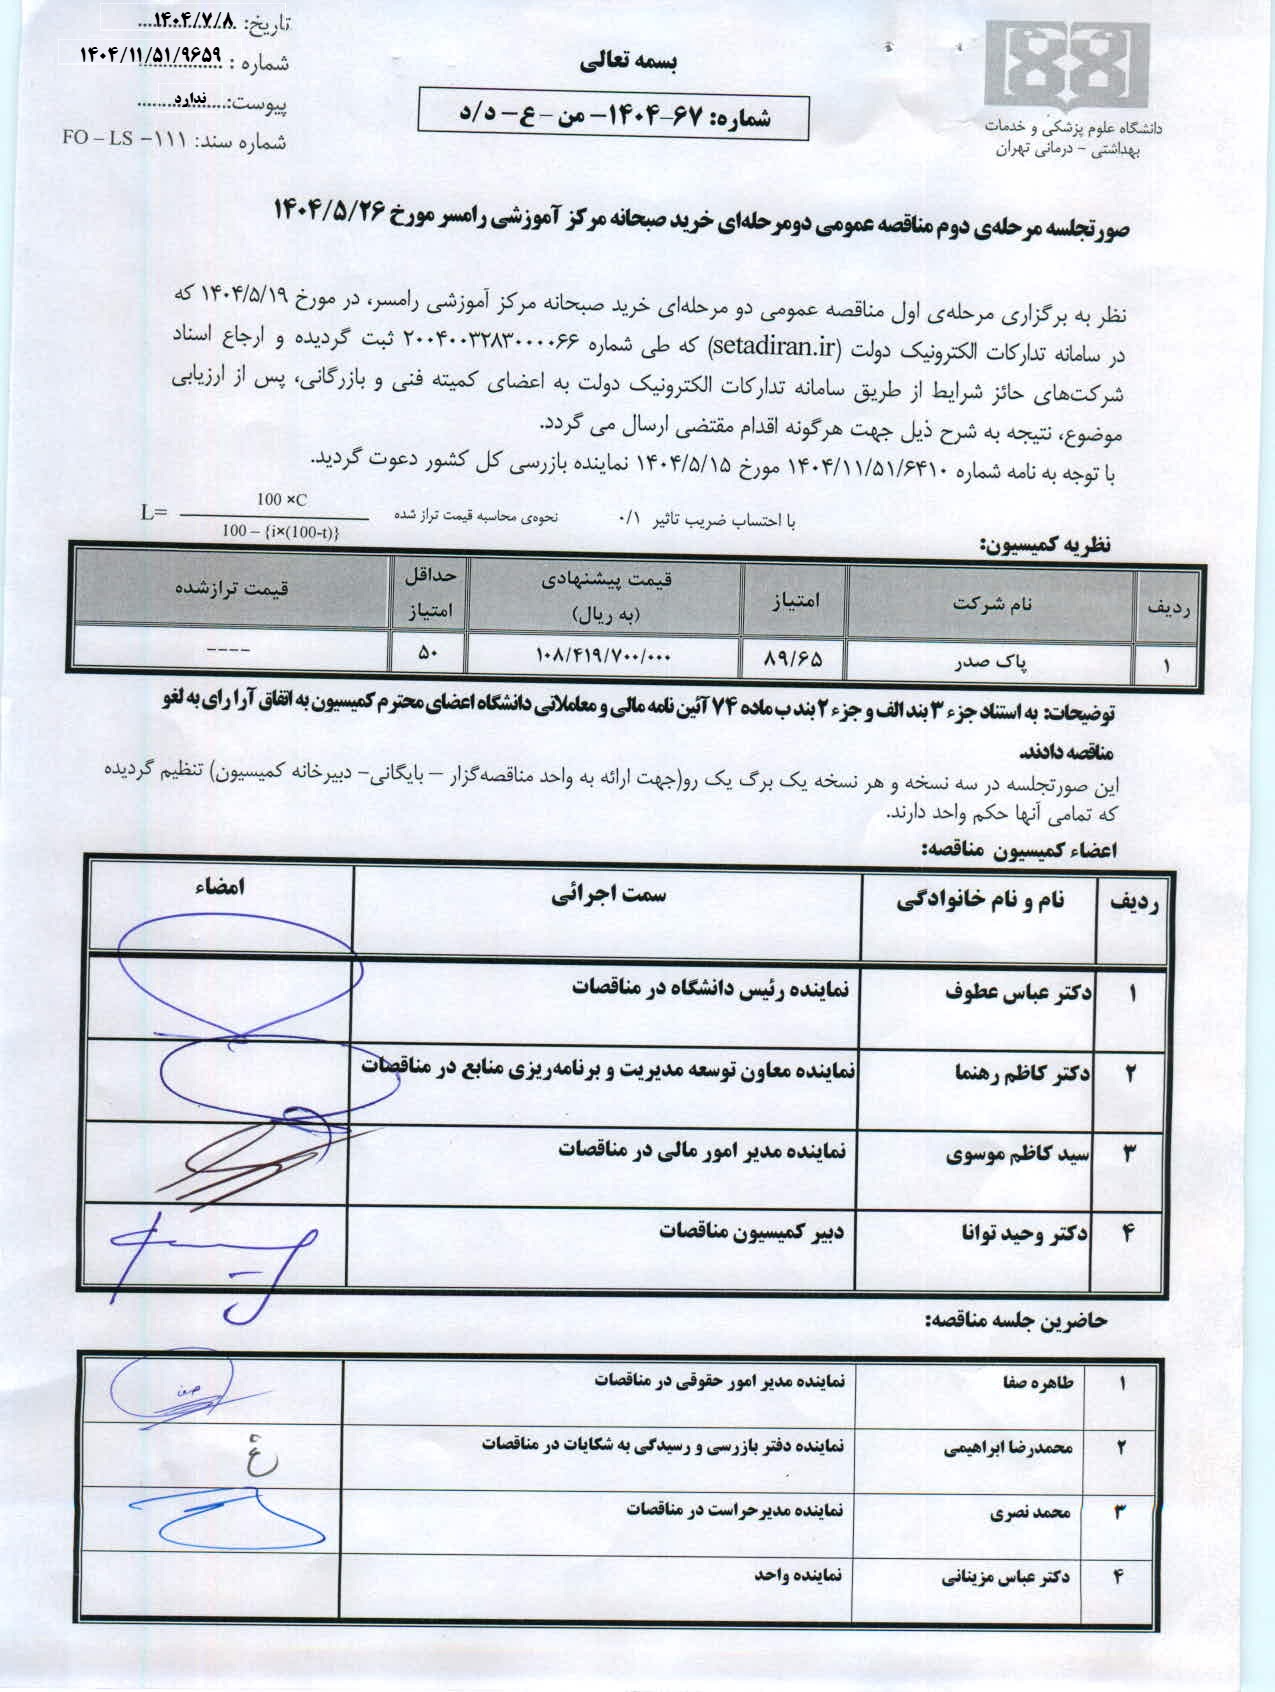 تاریخ: ۱۴۰۴/۷/۸
شماره : ۱۴۰۴/۱۱/۵۱/۹۶۵۹
پیوست: ندارد
شماره سند: FO – LS –۱۱۱
دانشگاه علوم پزشکی و خدمات
بهداشتی – درمانی تهران
بسمه تعالی
شماره: ۶۷-۱۴۰۴- من -ع- د/د
صورتجلسه مرحله‌ی دوم مناقصه عمومی دومرحله‌ای خرید صبحانه مرکز آموزشی رامسر مورخ ۱۴۰۴/۵/۲۶
نظر به برگزاری مرحله‌ی اول مناقصه عمومی دو مرحله‌ای خرید صبحانه مرکز آموزشی رامسر، در مورخ ۱۴۰۴/۵/۱۹ که
در سامانه تدارکات الکترونیک دولت (setadiran.ir) که طی شماره ۲۰۰۴۰۰۳۲۸۳۰۰۰۰۶۶ ثبت گردیده و ارجاع اسناد
شرکت‌های حائز شرایط از طریق سامانه تدارکات الکترونیک دولت به اعضای کمیته فنی و بازرگانی، پس از ارزیابی
موضوع، نتیجه به شرح ذیل جهت هرگونه اقدام مقتضی ارسال می گردد.
با توجه به نامه شماره ۱۴۰۴/۱۱/۵۱/۶۴۱۰ مورخ ۱۴۰۴/۵/۱۵ نماینده بازرسی کل کشور دعوت گردید.
با احتساب ضریب تاثیر ۰/۱ نحوه‌ی محاسبه قیمت تراز شده L= 100 ×C
100 – {i×(100-t)}
نظریه کمیسیون:
ردیف نام شرکت امتیاز قیمت پیشنهادی (به ریال) حداقل امتیاز قیمت ترازشده
۱ پاک صدر ۸۹/۶۵ ۱۰۸/۴۱۹/۷۰۰/۰۰۰ ۵۰ ----
توضیحات: به استناد جزء ۳ بند الف و جزء ۲ بند ب ماده ۷۴ آئین نامه مالی و معاملاتی دانشگاه اعضای محترم کمیسیون به اتفاق آرا رای به لغو
مناقصه دادند.
این صورتجلسه در سه نسخه و هر نسخه یک برگ یک رو(جهت ارائه به واحد مناقصه‌گزار – بایگانی- دبیرخانه کمیسیون) تنظیم گردیده
که تمامی آنها حکم واحد دارند.
اعضاء کمیسیون مناقصه:
ردیف نام و نام خانوادگی سمت اجرائی امضاء
۱ دکتر عباس عطوف نماینده رئیس دانشگاه در مناقصات
۲ دکتر کاظم رهنما نماینده معاون توسعه مدیریت و برنامه‌ریزی منابع در مناقصات
۳ سید کاظم موسوی نماینده مدیر امور مالی در مناقصات
۴ دکتر وحید توانا دبیر کمیسیون مناقصات
حاضرین جلسه مناقصه:
۱ طاهره صفا نماینده مدیر امور حقوقی در مناقصات
۲ محمدرضا ابراهیمی نماینده دفتر بازرسی و رسیدگی به شکایات در مناقصات
۳ محمد نصری نماینده مدیرحراست در مناقصات
۴ دکتر عباس مزینانی نماینده واحد